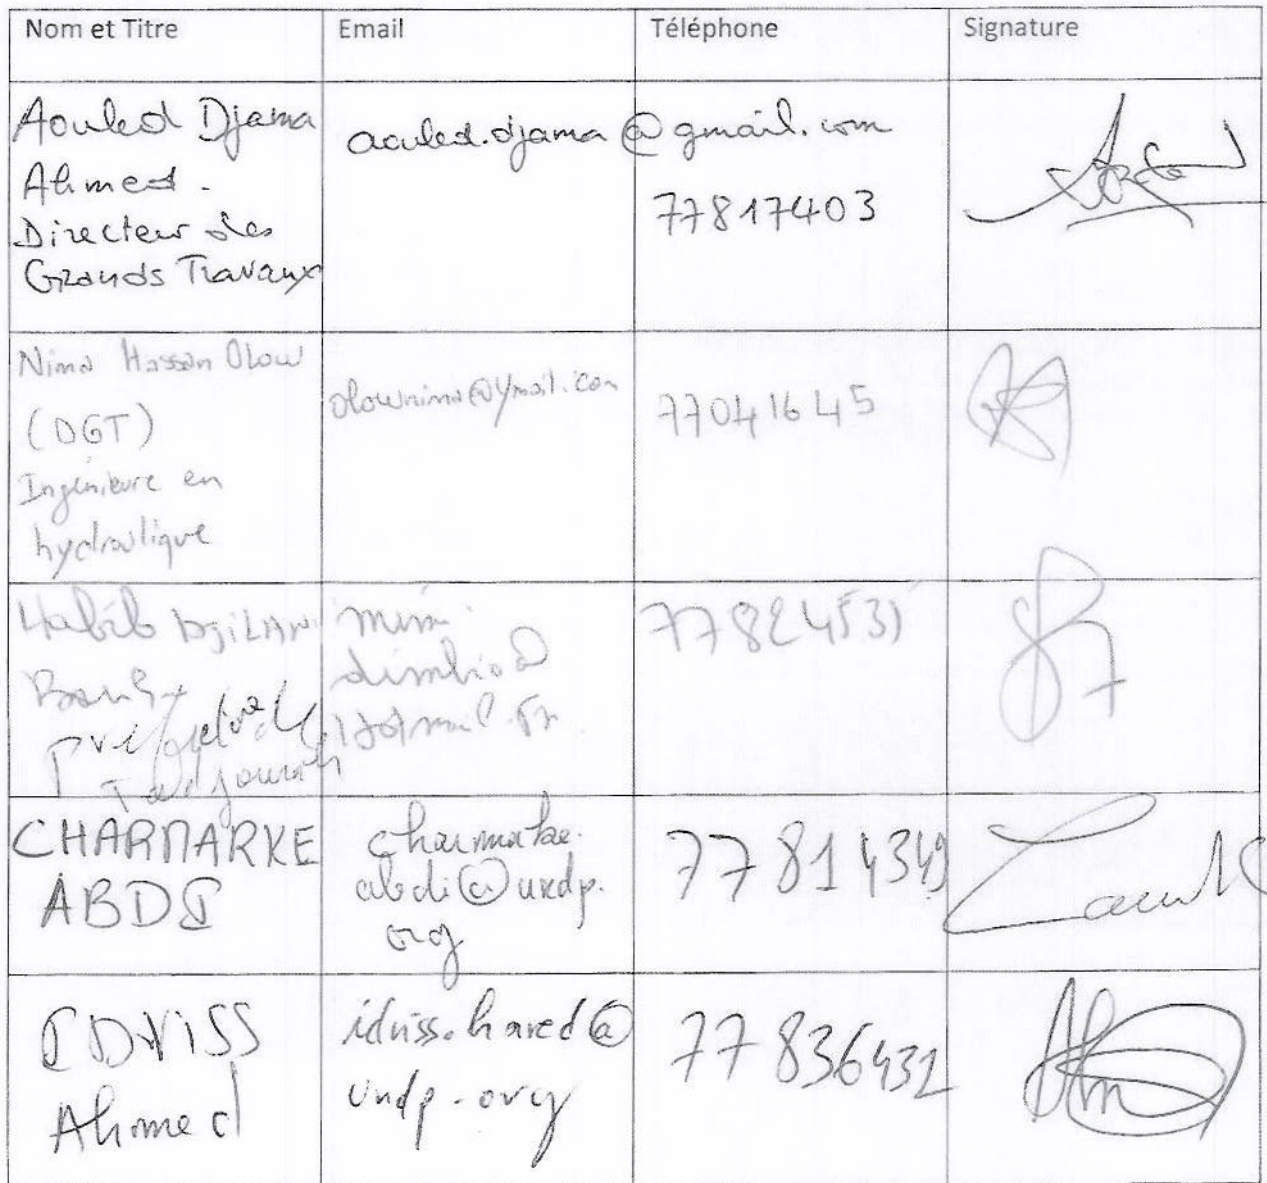 Nom et Titre Email Téléphone Signature
Aouled Djama
Ahmed.
Directeur des
Grands Travaux
aouled.djama@gmail.com
77817403
Nima Hassan Olow
(DGT)
Ingénieure en
hydraulique
olownima@ymail.com
77041645
Habib
préfecture de
Tadjourah
CHARMARKE
ABDI
charmarke.
abdi@undp.
org
77814349
IDRISS
Ahmed
undp.org
77836432